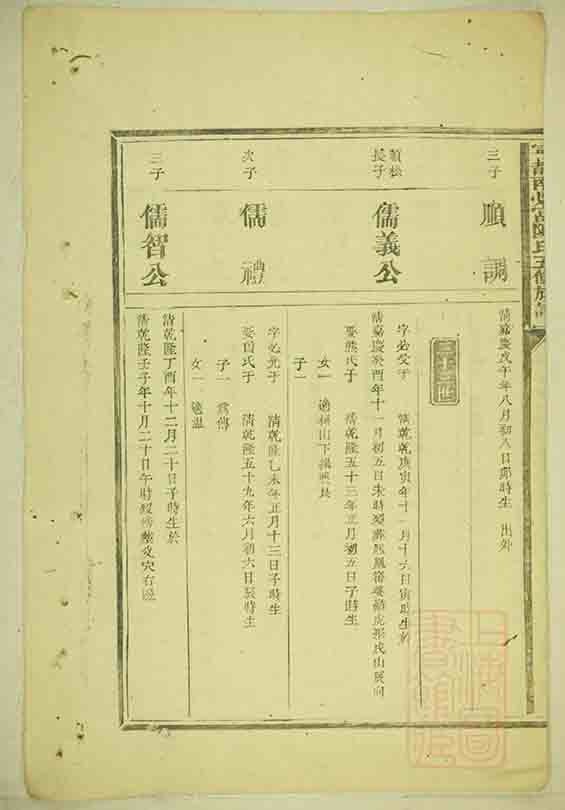 三子
順調
清嘉慶戊午年八月初八日卯時生 出外
三十三世
順松
長子
儒義公
字必受于 清乾隆庚寅年十一月十六日寅時生於
清嘉慶癸酉年十一月初五日未時歿葬
虎形戌山辰向
娶熊氏于 清乾隆五十三年正月初五日子時生
女一 適
子一
次子
儒禮
字必先于 清乾隆乙未年正月十三日子時生
氏于 清乾隆五十九年六月初六日辰時生
子一
女一 適
三子
儒智公
清乾隆丁酉年十二月二十日子時生於
清乾隆壬子年十月二十日午時歿
父穴右邊
上海圖書館藏